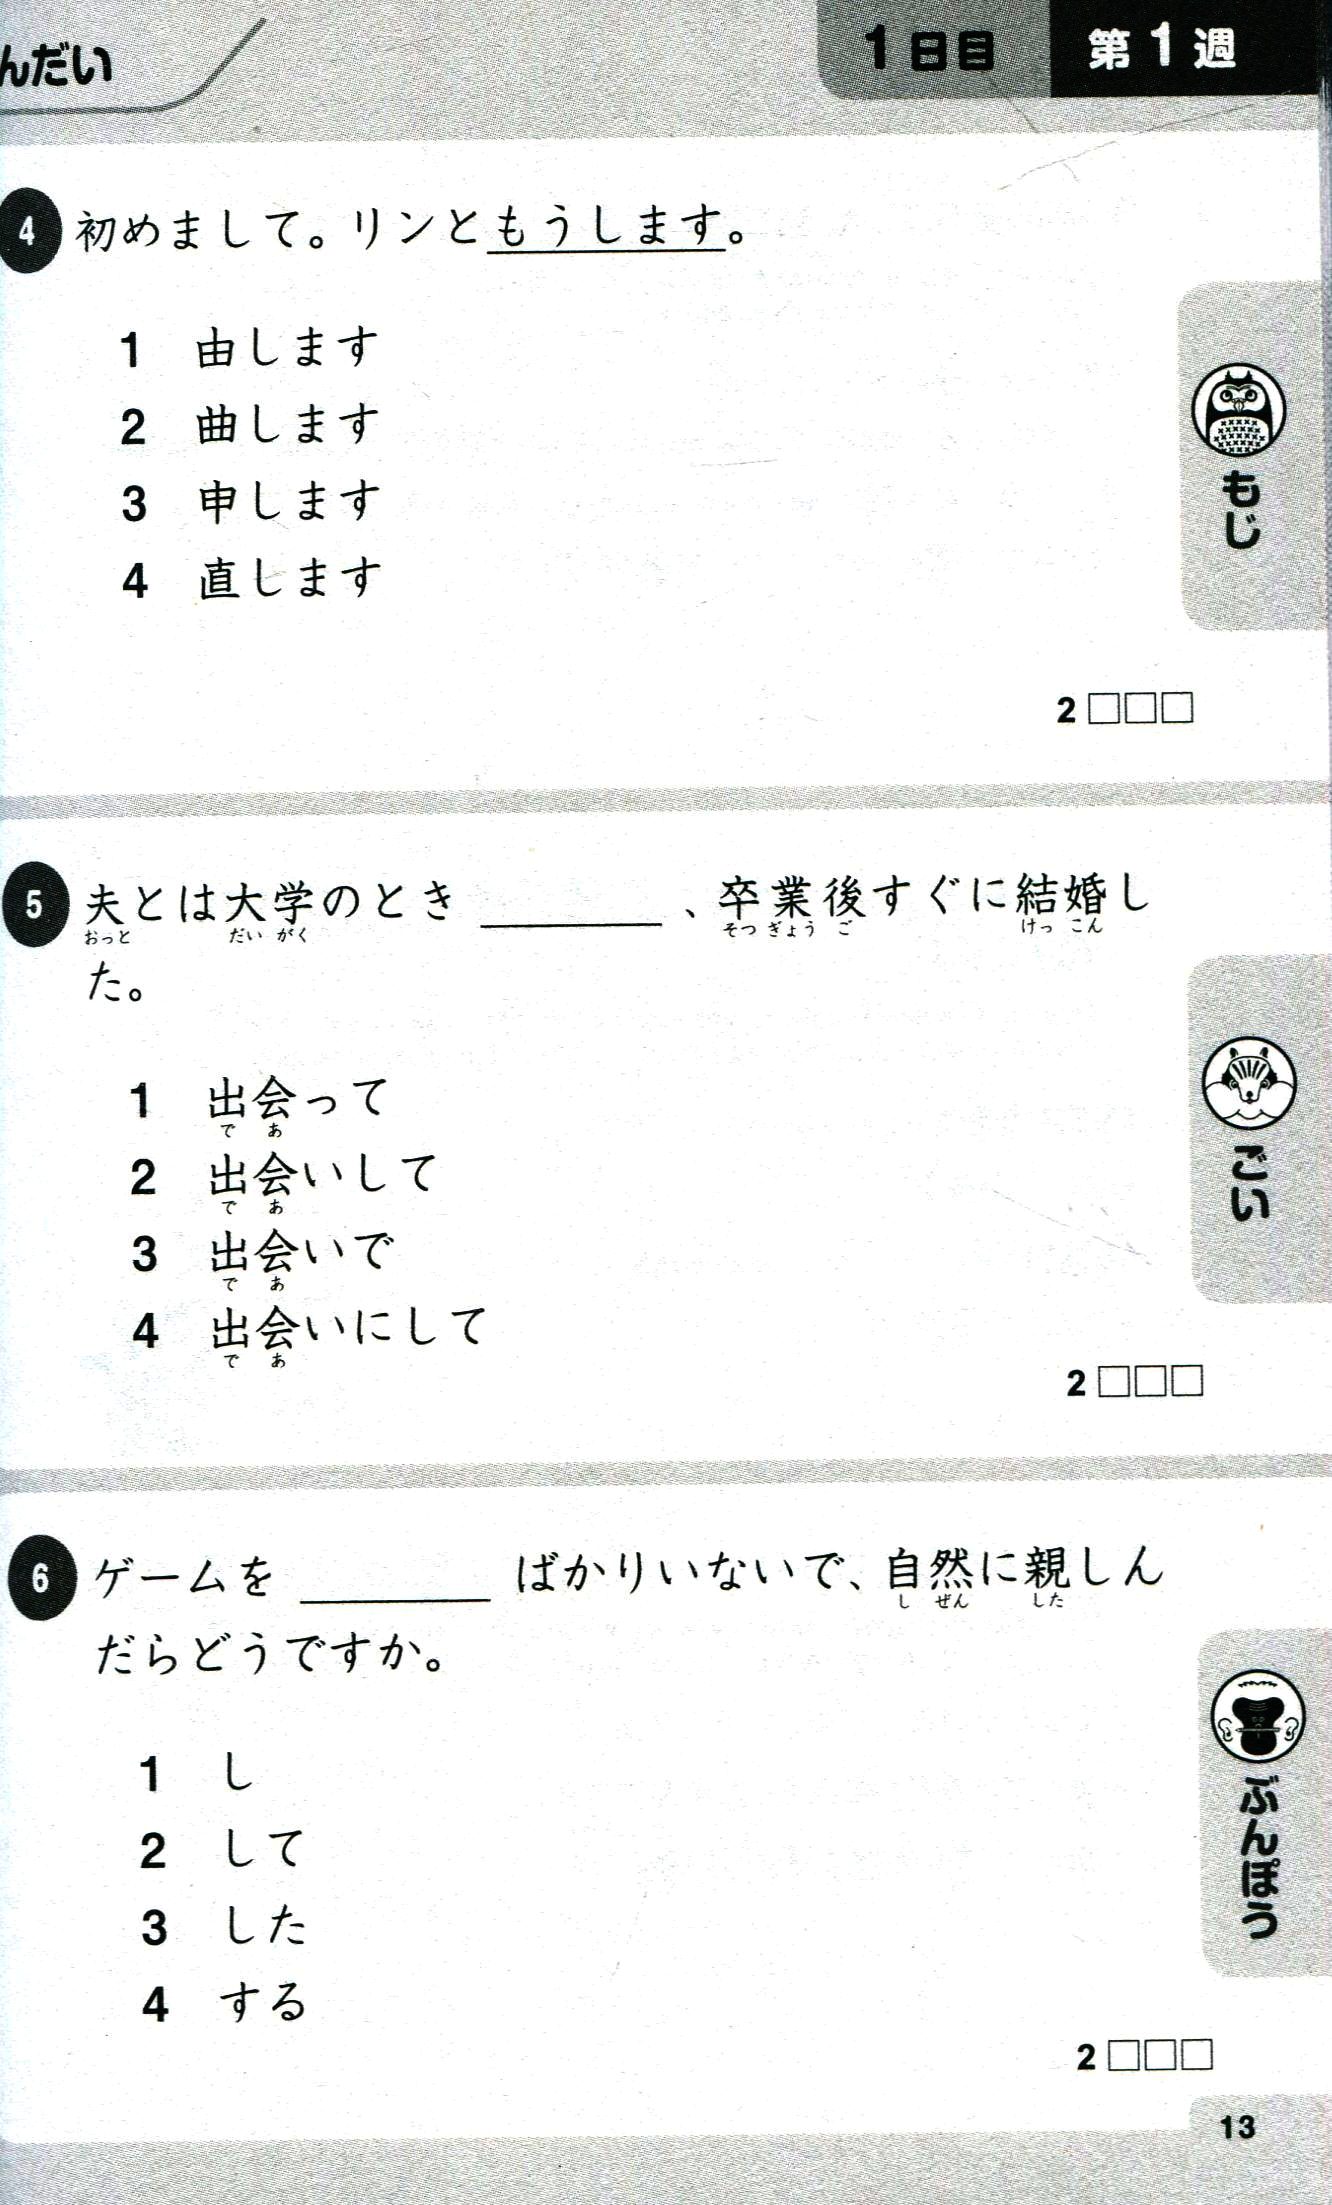 んだい
1日目 第1週
4 初めまして。リンともうします。
1 由します
2 曲します
3 申します
4 直します
もじ
2 □□□
5 夫とは大学のとき ＿＿＿＿ 、卒業後すぐに結婚し
おっと だい がく そつ ぎょう ご けっ こん
た。
1 出会って
で あ
2 出会いして
で あ
3 出会いで
で あ
4 出会いにして
で あ
ごい
2 □□□
6 ゲームを ＿＿＿＿ ばかりいないで、自然に親しん
し ぜん した
だらどうですか。
1 し
2 して
3 した
4 する
ぶんぽう
2 □□□
13